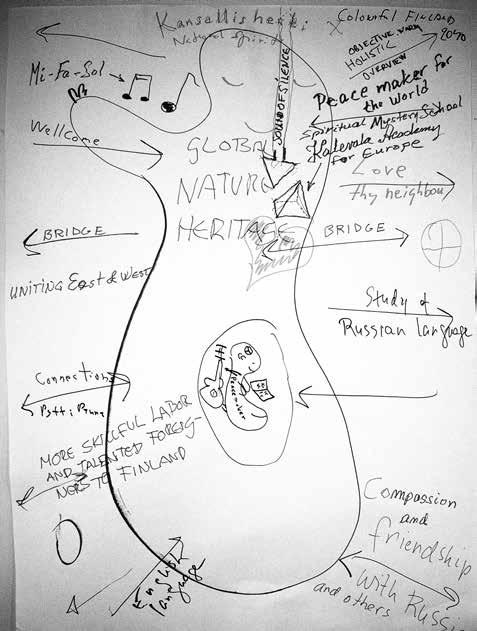 Kansallishenki
National Spirit
X Colourful FINLAND
2040
OBJECTIVE
HOLISTIC
OVERVIEW
Mi-Fa-Sol
Peace maker for
the world
Spiritual Mystery School
Kalevala Academy
for Europe
SOUND OF SILENCE
Wellcome
GLOBAL
NATURE
HERITAGE
Love
thy neighbou
BRIDGE
BRIDGE
UNITING East & WEST
Study of
Russian language
Connections
Peacemaker
MORE SKILLFUL LABOR
AND TALENTED FOREIG-
NERS TO FINLAND
Compassion
and
friendship
with Russi
and others
English
language